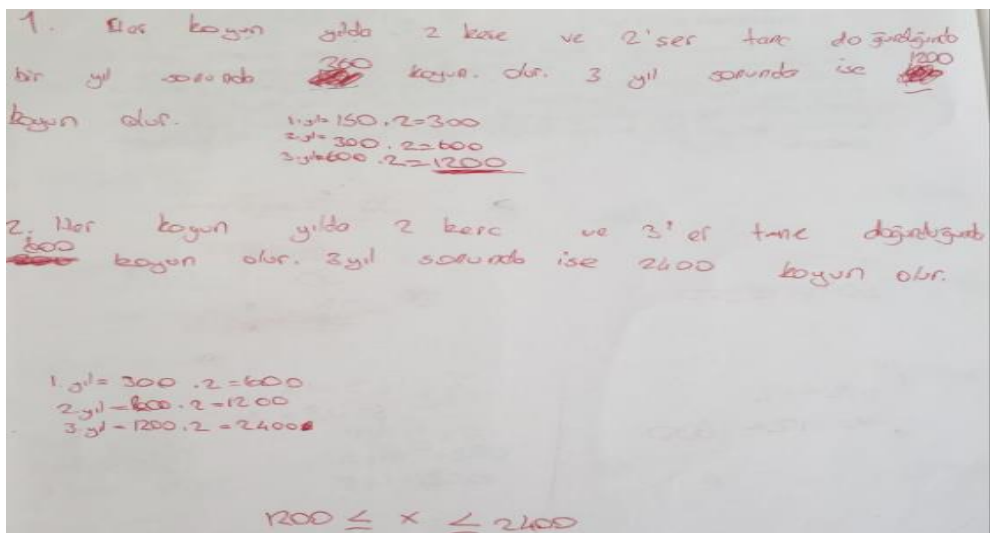 1. Her koyun yılda 2 kere ve 2'şer tane doğurduğunda
bir yıl sonunda 300 koyun. olur. 3 yıl sonunda ise 1200
koyun olur.
1.yıl= 150.2=300
2.yıl= 300.2=600
3.yıl=600.2=1200
2. Her koyun yılda 2 kere ve 3'er tane doğurduğunda
600 koyun olur. 3 yıl sonunda ise 2400 koyun olur.
1.yıl= 300.2=600
2.yıl=600.2=1200
3.yıl=1200.2=2400
1200 ≤ x ≤ 2400